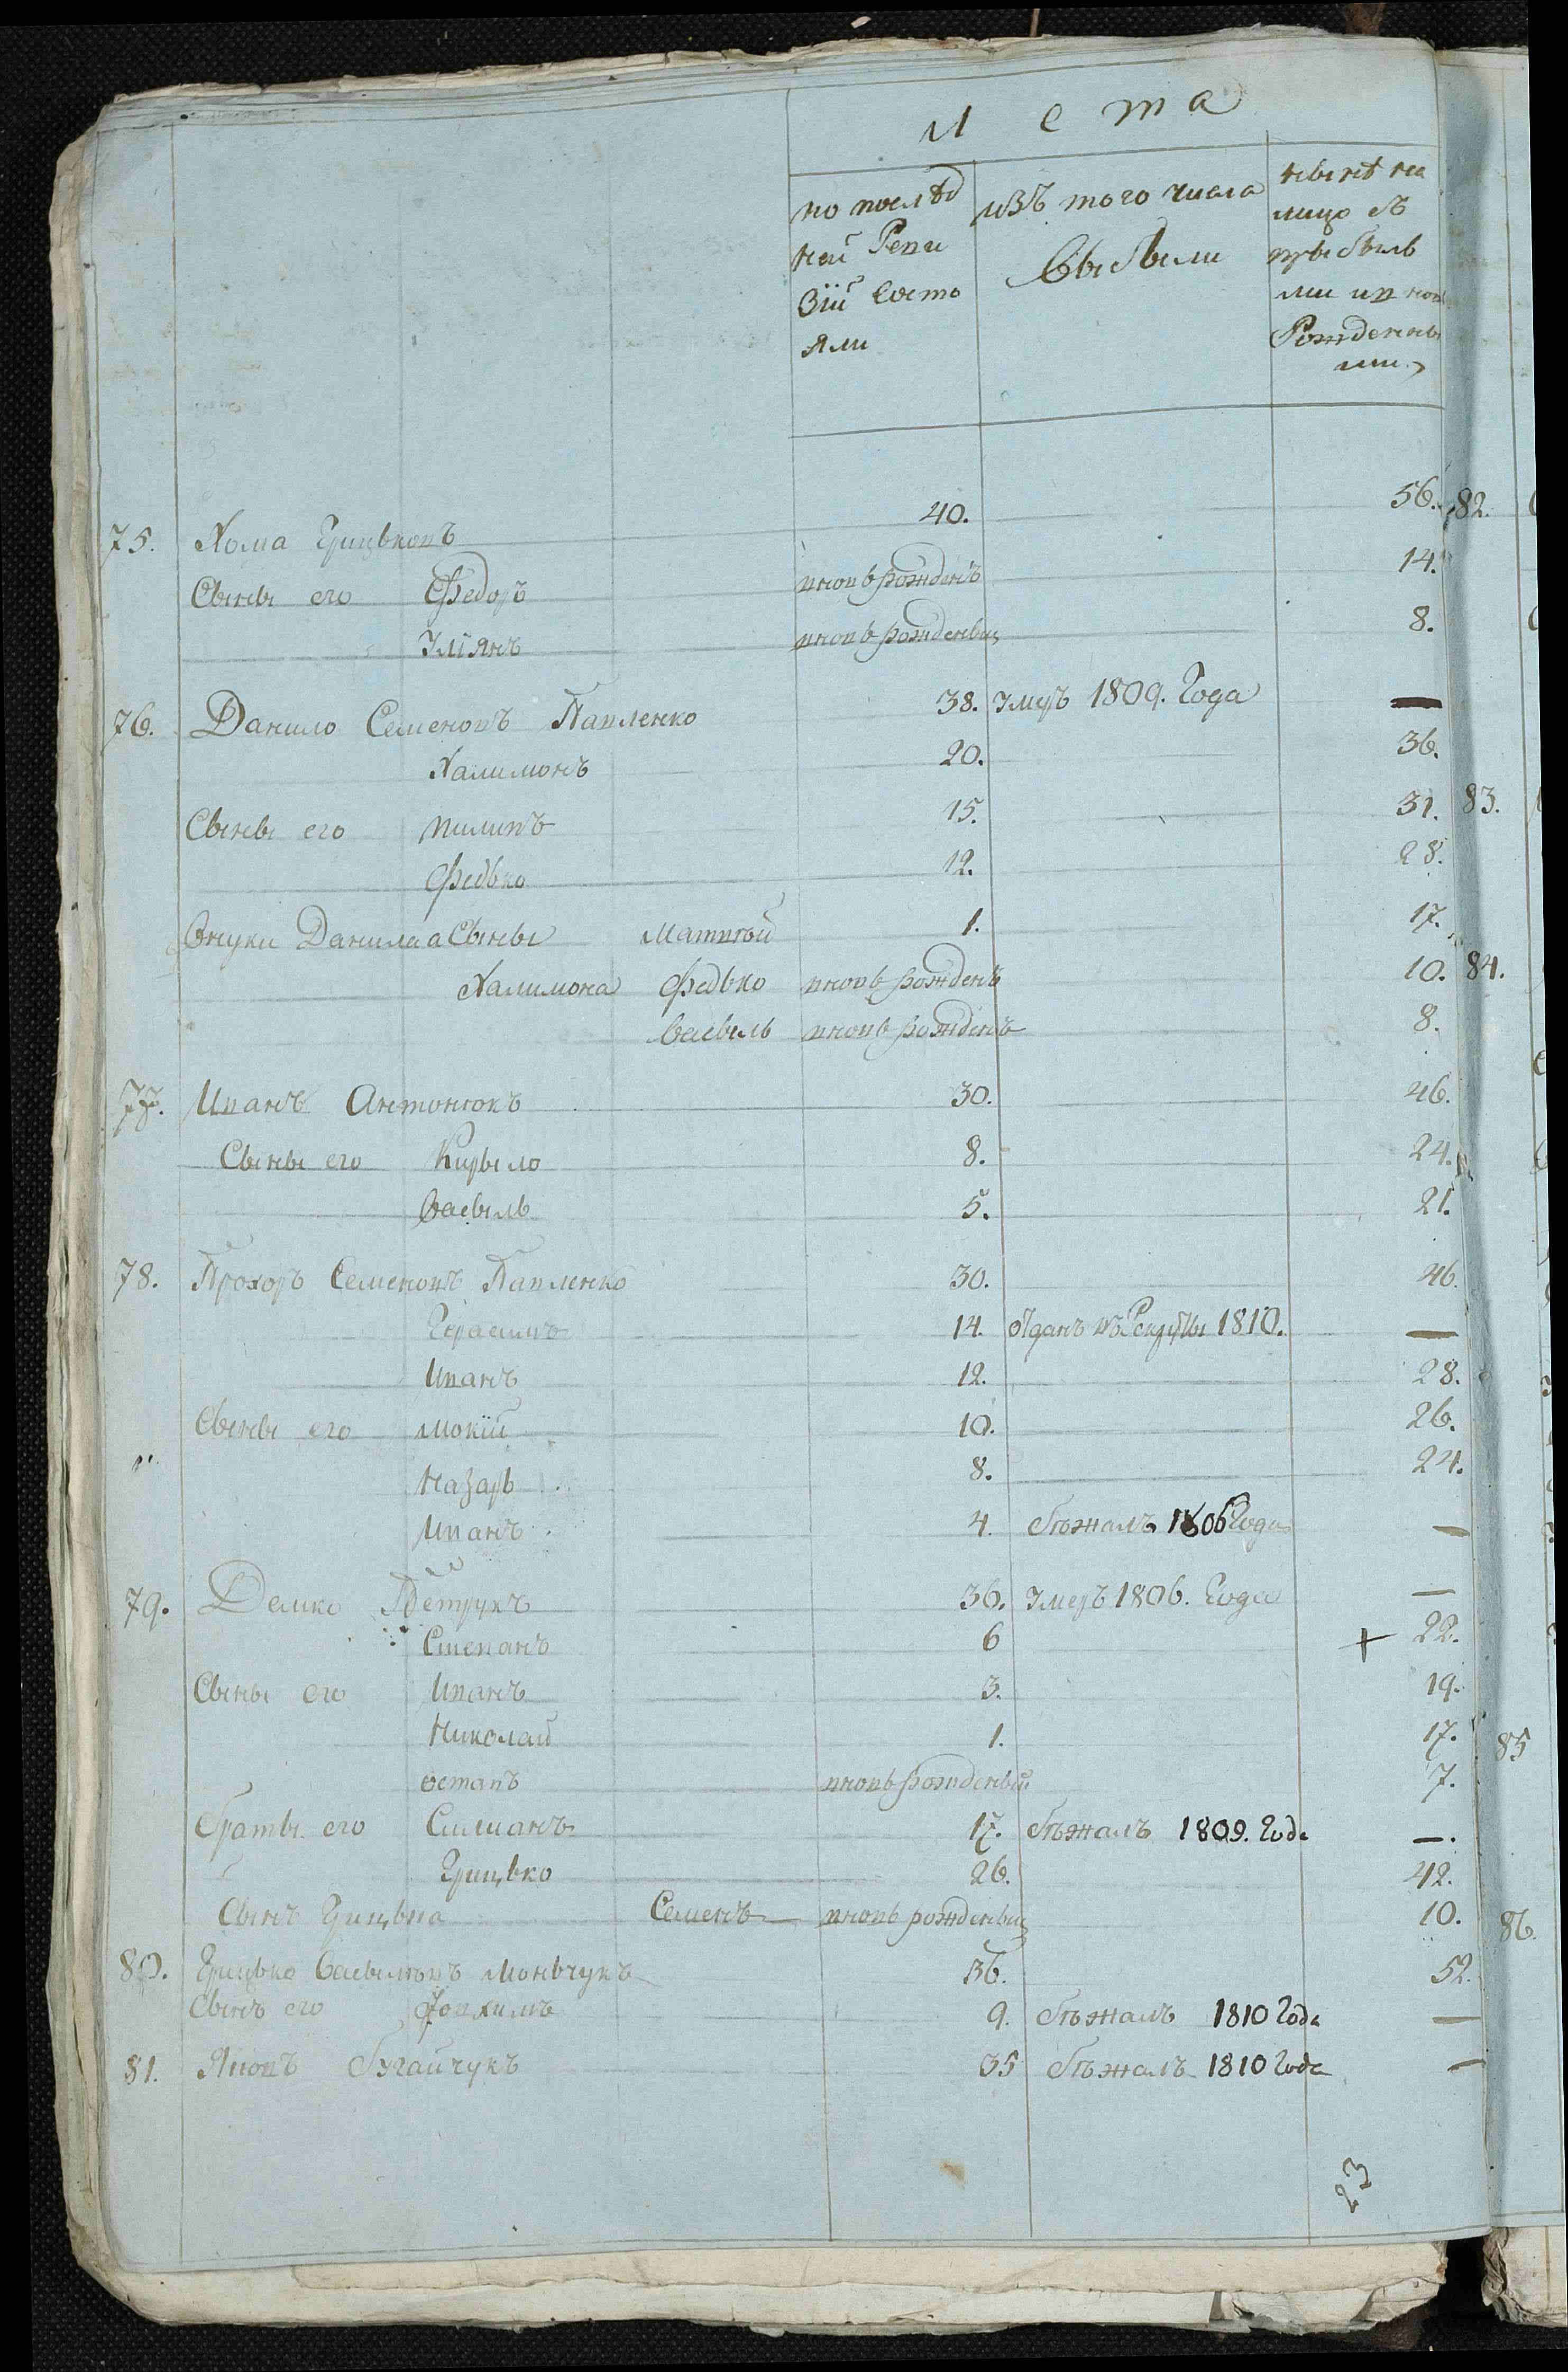 Лета
по послѣд
ней Реви
зіи Состо
яли
изъ того числа
Выбыли
нынѣ на
лицо съ
прыбыль
ми и в нов
Рожденны
ми
75. Хома Грицьковъ 40. 56.
Сыны его Федоръ вновь рожденъ 14.
Улїянъ вновь рожденый 8.
76. Данило Семеновъ Павленко 38. Умеръ 1809. Года —
Халимонъ 20. 36.
Сыны его Пилипъ 15. 31.
Федько 12. 28.
Внуки Данила а Сыны Матвѣй 1. 17.
Халимона Федько вновь рожденъ 10.
Васыль вновь рожденъ 8.
77. Иванъ Антонюкъ 30. 46.
Сыны его Кирыло 8. 24.
Васыль 5. 21.
78. Прохоръ Семеновъ Павленко 30. 46.
Герасимъ 14. отданъ въ Рекруты 1810. —
Иванъ 12. 28.
Сыны его Мокїй 10. 26.
Назаръ 8. 24.
Иванъ 4. бѣжалъ 1806 Года —
79. Демко Петрукъ 36. Умеръ 1806. Года —
Степанъ 6 + 22.
Сыны его Иванъ 3. 19.
Николай 1. 17.
остапъ вновь рожденый 7.
Браты его Силианъ 17. бѣжалъ 1809. Года —.
Грицько 26. 42.
Сынъ Грицька Семенъ вновь рожденый 10.
80. Грицько Васыльовъ Моньчукъ 36. 52.
Сынъ его Иовхимъ 9. бѣжалъ 1810 Года —
81. Яковъ Бугайчукъ 35 бѣжалъ 1810 Года —
23
82.
83.
84.
85
86.